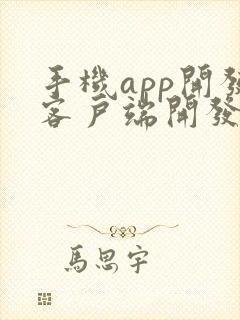 手機app開發
客戶端開發
馬思宇